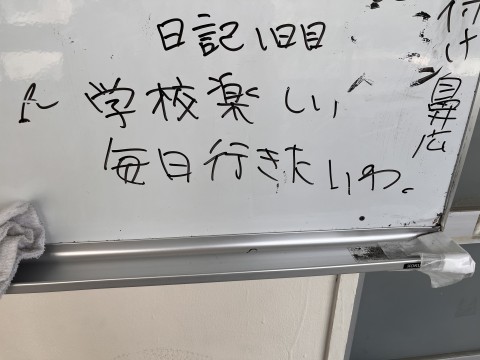 日記1日目
学校楽しい
毎日行きたいわ。
付け鼻広